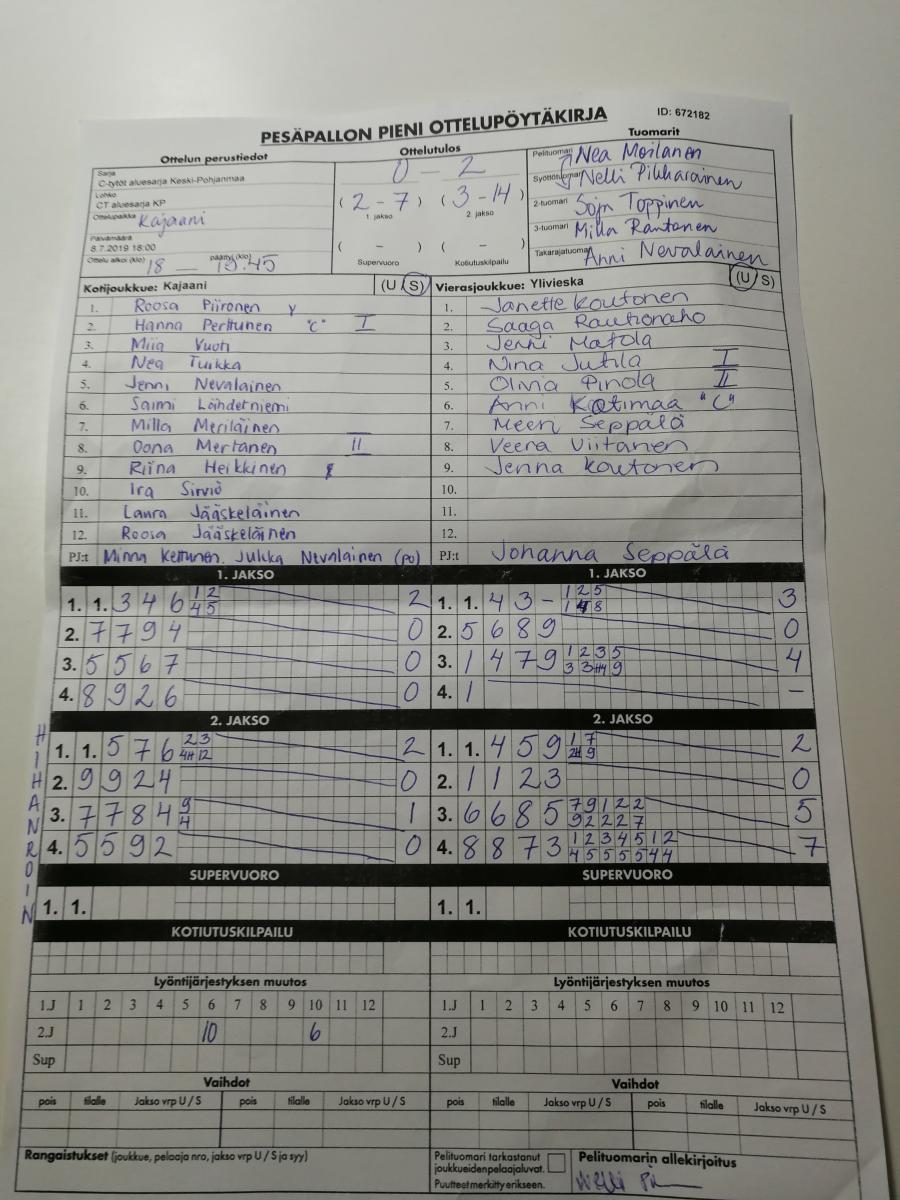 PESÄPALLON PIENI OTTELUPÖYTÄKIRJA ID: 672182
Ottelun perustiedot Ottelutulos Tuomarit
Sarja
C-tytöt aluesarja Keski-Pohjanmaa
Lohko
CT aluesarja KP
Ottelupaikka Kajaani
Päivämäärä
8.7.2019 18:00
Ottelu alkoi (klo) 18 — päättyi (klo) 19.45
0 - 2
( 2 - 7 ) ( 3 - 14 )
1. jakso 2. jakso
( - ) ( - )
Supervuoro Kotiutuskilpailu
Pelituomari Nea Moilanen
Syöttötuomari Nelli Pikkarainen
2-tuomari Soja Toppinen
3-tuomari Milla Rantanen
Takarajatuomari Anni Nevalainen
Kotijoukkue: Kajaani (U S)
1. Roosa Piironen y
2. Hanna Perttunen "C" I
3. Miia Vuoti
4. Nea Tuikka
5. Jenni Nevalainen
6. Saimi Lähderniemi
7. Milla Meriläinen
8. Oona Mertanen II
9. Riina Heikkinen
10. Ira Sirviö
11. Laura Jääskeläinen
12. Roosa Jääskeläinen
PJ:t Minna Kettunen, Jukka Nevalainen (po)
Vierasjoukkue: Ylivieska (U S)
1. Janette Koutonen
2. Saaga Rautionaho
3. Jenni Matola
4. Nina Jutila I
5. Olivia Pinola II
6. Anni Kotimaa "C"
7. Meeri Seppälä
8. Veera Viitanen
9. Jenna Koutonen
10.
11.
12.
PJ:t Johanna Seppälä
1. JAKSO 1. JAKSO
1. 1. 3 4 6 1 2 2
4 5
2. 7 7 9 4 0
3. 5 5 6 7 0
4. 8 9 2 6 0
1. 1. 4 3 - 1 2 5 3
1 4 8
2. 5 6 8 9 0
3. 1 4 7 9 1 2 3 5 4
3 3 #4 9
4. 1 -
2. JAKSO 2. JAKSO
HIHANROIN
1. 1. 5 7 6 2 3 2
4# 12
2. 9 9 2 4 0
3. 7 7 8 4 9 1
4
4. 5 5 9 2 0
1. 1. 4 5 9 1 7 2
2# 9
2. 1 1 2 3 0
3. 6 6 8 5 7 9 1 2 2 5
9 2 2 2 7
4. 8 8 7 3 1 2 3 4 5 1 2 7
4 5 5 5 5 4 4
SUPERVUORO SUPERVUORO
1. 1. 1. 1.
KOTIUTUSKILPAILU KOTIUTUSKILPAILU
Lyöntijärjestyksen muutos Lyöntijärjestyksen muutos
1.J 1 2 3 4 5 6 7 8 9 10 11 12 1.J 1 2 3 4 5 6 7 8 9 10 11 12
2.J 10 6 2.J
Sup Sup
Vaihdot Vaihdot
pois tilalle Jakso vrp U / S pois tilalle Jakso vrp U / S pois tilalle Jakso vrp U / S pois tilalle Jakso vrp U / S
Rangaistukset (joukkue, pelaaja nro, jakso vrp U / S ja syy)
Pelituomari tarkastanut
joukkueiden pelaajaluvat.
Puutteet merkitty erikseen.
Pelituomarin allekirjoitus
Nelli